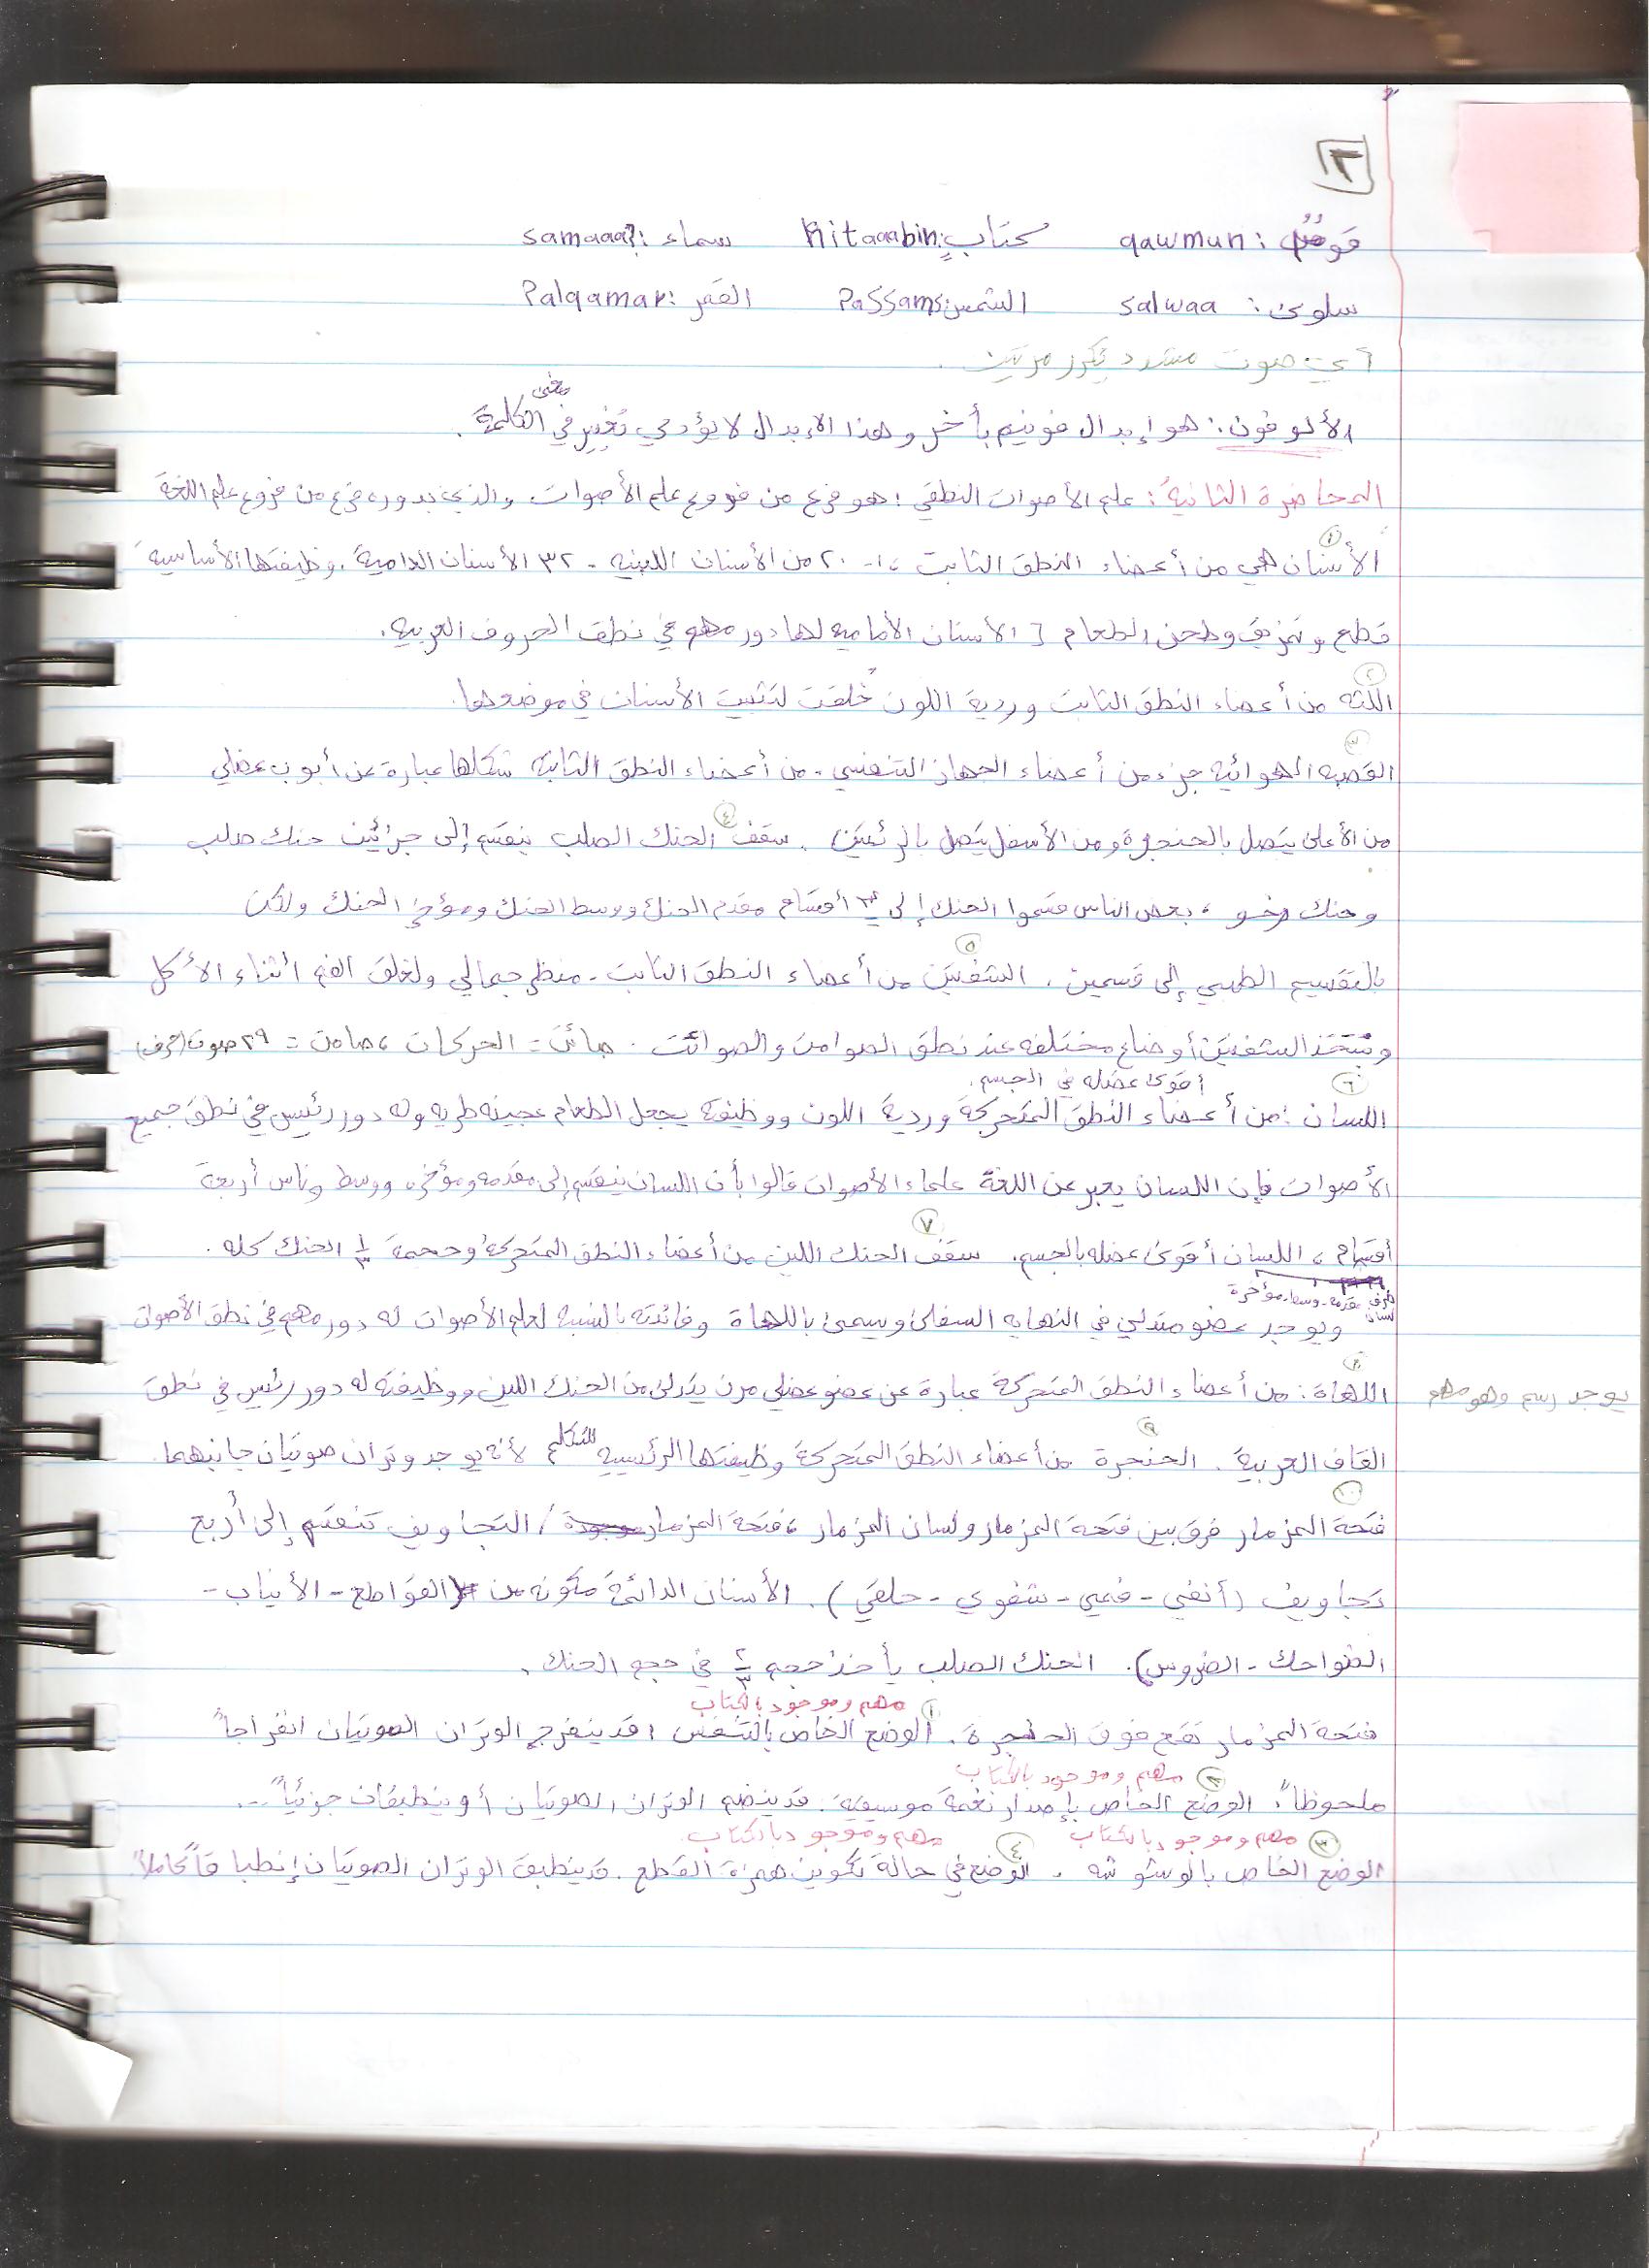 ٢
قومٌ : qawmun كتابٍ : Kitaaabin سماء : samaaa?
سلوى : salwaa الشمس : ?aSSams القمر : ?alqamar
أي صوت مشدد يكرر مرتين .
الألوفون : هو إبدال فونيم بأخر وهذا الإبدال لا يؤدي تغيير في معنى الكلمة .
المحاضرة الثانية : علم الأصوات النطقي : هو فرع من فروع علم الأصوات والذي بدوره فرع من فروع علم اللغة
١
الأسنان هي من أعضاء النطق الثابت ٢٠ من الأسنان اللبنيه - ٣٢ الأسنان الدامية . وظيفتها الأساسية
قطع وتمزيق وطحن الطعام الاسنان الأماميه لها دور مهم في نطق الحروف العربيه .
٢
اللثه من أعضاء النطق الثابت وردية اللون خُلقت لتثبيت الأسنان في موضعها .
٣
القصبه الهوائيه جزء من أعضاء الجهاز التنفسي - من أعضاء النطق الثابته شكلها عبارة عن أنبوب عضلي
من الأعلى يتصل بالحنجرة ومن الأسفل يتصل بالرئتين . ٤ سقف الحنك الصلب ينقسم إلى جزأين حنك صلب
وحنك رخو ، بعض الناس قسموا الحنك إلى ٣ أقسام مقدم الحنك ووسط الحنك ومؤخر الحنك ولكن
بالتقسيم الطبي إلى قسمين . ٥ الشفتين من أعضاء النطق الثابت - منظر جمالي ولغلق الفم أثناء الأكل
وتتخذ الشفتين أوضاع مختلفه عند نطق الصوامت والصوائت . صائت = الحركات ، صامت = ٢٩ صوت (حرف)
٦ أقوى عضله في الجسم .
اللسان : من أعضاء النطق المتحركة وردية اللون ووظيفته يجعل الطعام عجينه طريه وله دور رئيس في نطق جميع
الأصوات فإن اللسان يعبر عن اللغة علماء الأصوات قالوا بأن اللسان ينقسم إلى مقدمه ومؤخره ووسط وناس أربعة
أقسام ، اللسان أقوى عضله بالجسم . ٧ سقف الحنك اللين من أعضاء النطق المتحركة وحجمة ١/٣ الحنك كله .
طرف لسان مقدمه - وسط - مؤخرة
ويوجد عضو متدلي في النهايه السفلى ويسمى باللهاة وفائدته بالنسبه لعلم الأصوات له دور مهم في نطق الأصوات
٨
اللهاة : من أعضاء النطق المتحركة عبارة عن عضو عضلي مرن يتدلى من الحنك اللين ووظيفته له دور رئيس في نطق
يوجد رسم وهو مهم
القاف العربية . ٩ الحنجرة من أعضاء النطق المتحركة وظيفتها الرئيسيه للتكلم لأنه يوجد وتران صوتيان جانبهما .
١٠
فتحة المزمار فرق بين فتحة المزمار ولسان المزمار ، فتحة المزمار / التجاويف تنقسم إلى أربع
تجاويف (أنفي - فمي - شفوي - حلقي) . الأسنان الدائمة مكونه من (القواطع - الأنياب -
الضواحك - الضروس) . الحنك الصلب يأخذ حجم ٢/٣ في حجم الحنك .
مهم وموجود بالكتاب
فتحة المزمار تقع فوق الحنجرة . ١ الوضع الخاص بالتنفس : قد ينفرج الوتران الصوتيان انفراجاً
مهم وموجود بالكتاب
ملحوظاً . ٢ الوضع الخاص بإصدار نغمة موسيقية : قد ينضم الوتران الصوتيان أو ينطبقان جزئياً ...
٣ مهم وموجود بالكتاب ٤ مهم وموجود بالكتاب
الوضع الخاص بالوشوشه . الوضع في حالة تكوين همزة القطع . قد ينطبق الوتران الصوتيان إنطباقاً كاملاً .